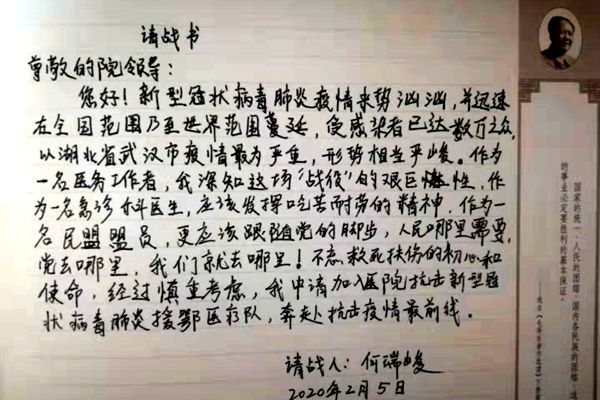 请战书
尊敬的院领导：
您好！新型冠状病毒肺炎疫情来势汹汹，并迅速
在全国范围乃至世界范围蔓延，使感染者已达数万之众，
以湖北省武汉市疫情最为严重，形势相当严峻。作为
一名医务工作者，我深知这场“战役”的艰巨性，作
为一名急诊科医生，应该发挥吃苦耐劳的精神，作为一
名民盟盟员，更应该跟随党的脚步，人民哪里需要，
党去哪里，我们就去哪里！不忘救死扶伤的初心和
使命，经过慎重考虑，我申请加入医院抗击新型冠
状病毒肺炎援鄂医疗队，奔赴抗击疫情最前线。
请战人：何瑞峻
2020年2月5日
国家的统一，人民的团结，国内各民族的团结，这
的事业必定要胜利的基本保证。
选自《毛泽东著作选读》下册